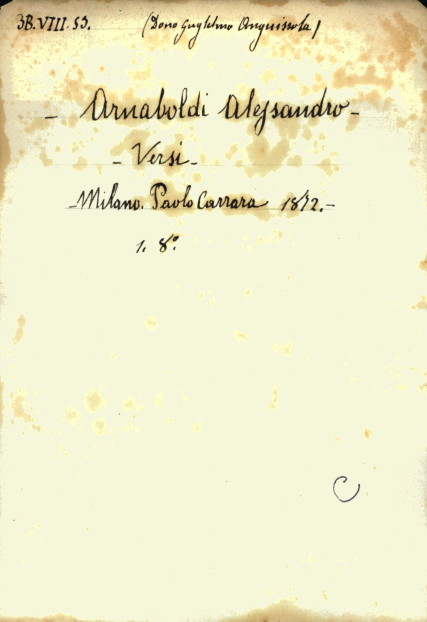 3B.VIII.53. (Dono Guglielmo Anguissola)
- Arnaboldi Alessandro -
- Versi -
- Milano. Paolo Carrara 1872. -
1. 8°.
C